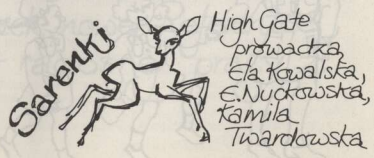 Sarenki
High Gate
prowadzą,
Ela Kowalska,
E. Nuckowska,
Kamila
Twardowska